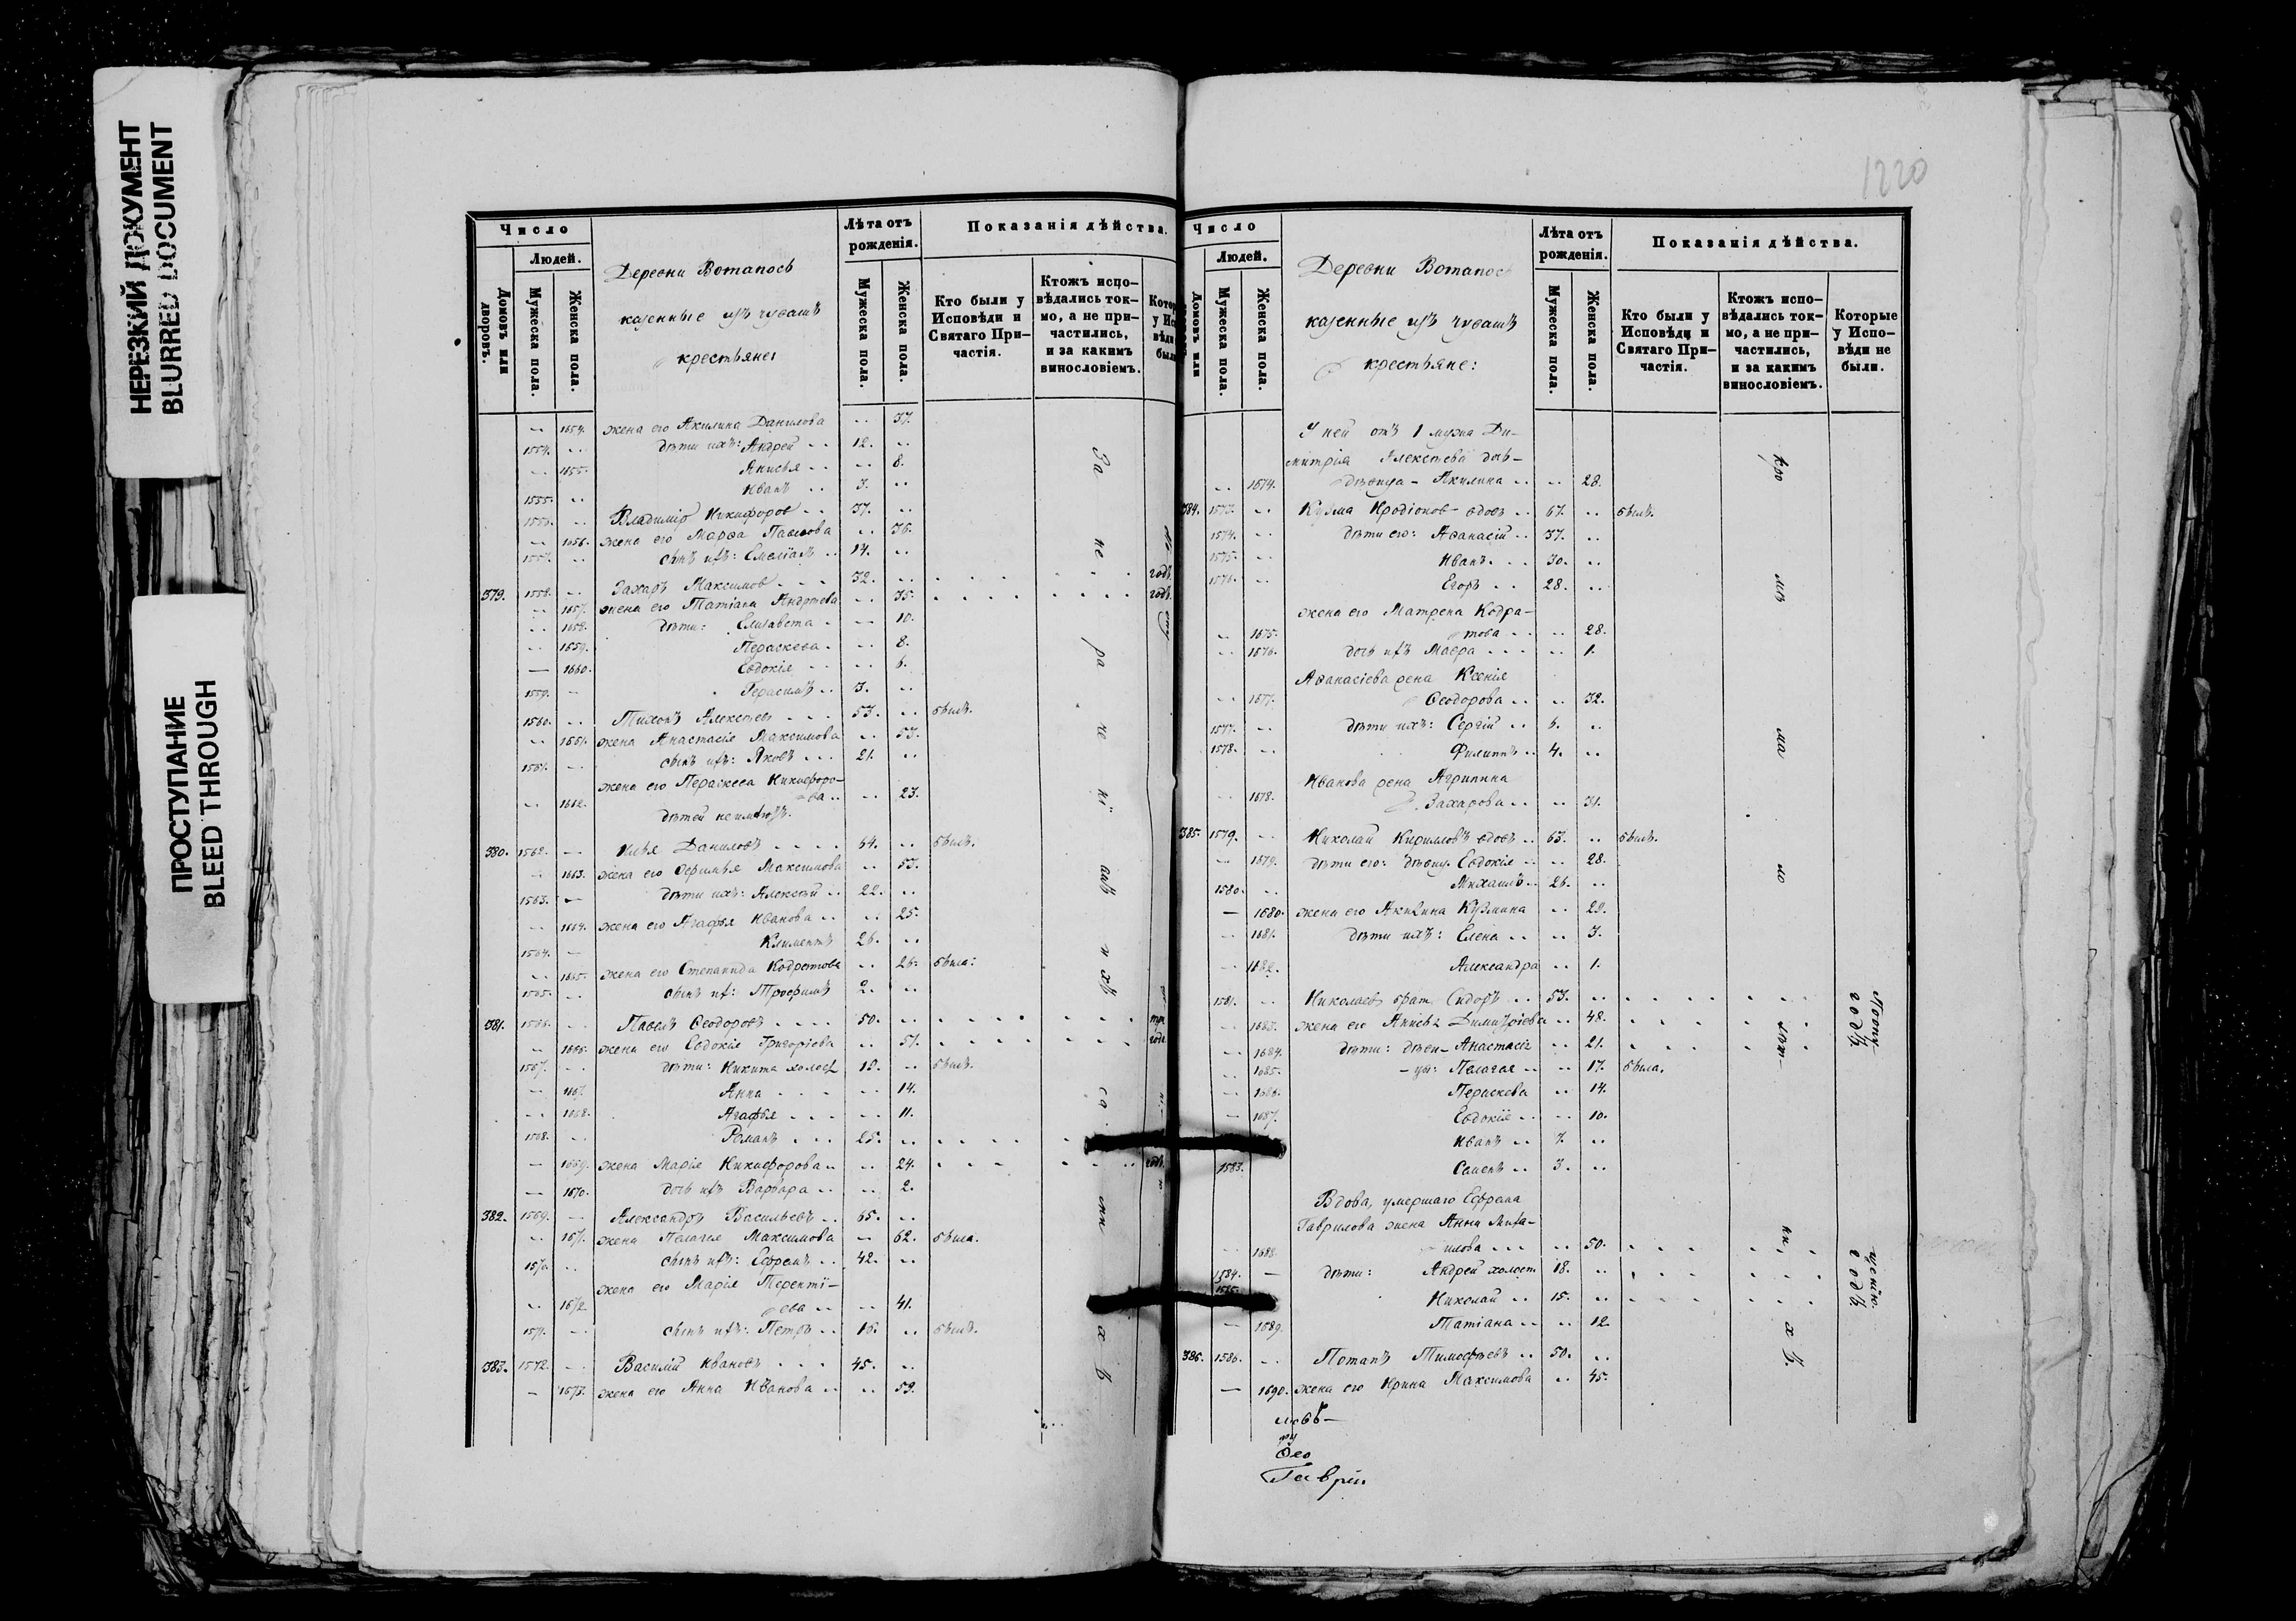 НЕРЕЗКИЙ ДОКУМЕНТ
BLURRED DOCUMENT
ПРОСТУПАНИЕ
BLEED THROUGH
Число
Людей.
Домовъ или дворовъ.
Мужеска пола.
Женска пола.
Деревни Вотапось
казенные изъ чувашъ
крестьяне:
Лѣта отъ рожденія.
Мужеска пола.
Женска пола.
Показанія дѣйства.
Кто были у Исповѣди и Святаго Причастія.
Ктожъ исповѣдались токмо, а не причастились, и за какимъ винословіемъ.
.. 1654. жена его Акилина Данилова .. 37.
1554. .. дѣти ихъ: Андрей .. 12. ..
.. 1655. Анисья .. .. 8.
1555. .. Иванъ .. 3. ..
1556. .. Владиміръ Никифоровъ .. 37. ..
.. 1656. жена его Марѳа Павлова .. 36.
1557. .. сынъ ихъ: Емеліанъ .. 14. ..
379. 1558. .. Захаръ Максимовъ 32. .. годъ.
.. 1657. жена его Татіана Андреева .. 35. годъ.
.. 1658. дѣти: Елизавета .. 10.
.. 1659. Параскева .. 8.
— 1660. Евдокія .. 6.
1559. — Герасимъ .. 3. ..
1560. .. Тихонъ Алексеевъ 53. .. былъ.
.. 1661. жена Анастасія Максимова .. 53.
1561. — сынъ ихъ: Яковъ 21. ..
жена его Параскева Никифоро-
.. 1662. ва .. .. 23.
дѣтей неимѣютъ.
380. 1562. — Илья Даниловъ 64. .. былъ.
.. 1663. жена его Максимова .. 53.
1563. — дѣти ихъ: Алексѣй .. 22. ..
.. 1664. жена его Агафья Иванова .. .. 25.
1564. — Климентъ 26. ..
.. 1665. жена его Степанида Кодратова .. 26. была:
1565. .. сынъ их: Трофимъ 2. ..
381. 1566. .. Павелъ Ѳеодоровъ 50. ..
.. 1666. жена его Евдокія Григоріева .. 51. годъ.
1567. .. дѣти: Никита холост 18. .. былъ.
— 1667. Анна — 14.
.. 1668. Агафья .. 11.
1568. .. Романъ 25. ..
— 1669. жена Марія Никифорова .. .. 24. годъ.
— 1670. дочь ихъ Варвара .. .. 2.
382. 1569. — Александръ Васильевъ .. 65. ..
.. 1671. жена Пелагея Максимова — 62. была.
1570. .. сынъ ихъ: Ефремъ .. 42. ..
жена его Марія Теренті-
.. 1672. ева .. .. 41.
1571. — сынъ ихъ: Петръ .. 16. .. былъ.
383. 1572. .. Василій Ивановъ 45. ..
— 1673. жена его Анна Иванова .. .. 59.
1220
Число
Людей.
Мужеска пола.
Женска пола.
Деревни Вотапос
казенные изъ чувашъ
крестьяне:
Лѣта отъ рожденія.
Мужеска пола.
Женска пола.
Показанія дѣйства.
Кто были у Исповѣди и Святаго Причастія.
Ктожъ исповѣдались токмо, а не причастились, и за какимъ винословіемъ.
Которые у Исповѣди не были.
У ней отъ 1 мужа Ди-
митрія Алексѣева дочь-
.. 1674. дѣвица - Акилина .. .. 28.
384. 1573. .. Кузма Иродіонов - вдовъ .. 67. .. былъ.
1574. .. дѣти его: Аѳанасій .. 37. ..
1575. .. Иванъ 30. ..
1576. .. Егоръ .. 28. ..
жена его Матрена Кодра-
.. 1675. това .. .. 28.
.. 1676. дочь ихъ Мавра .. 1.
Аѳанасіева жена Ксенія
.. 1677. Ѳеодорова .. .. 32.
1577. .. дѣти ихъ: Сергій .. 6. ..
1578. .. Филиппъ .. 4. ..
Иванова жена Агрипина
.. 1678. Захарова .. .. 31.
385. 1579. .. Николай Кирилловъ вдовъ .. 63. .. былъ.
.. 1679. дѣти его: дѣвиц. Евдокія .. .. 28.
1580. .. Михаилъ .. 26. ..
— 1680. жена его Акилина Кузмина .. 22.
.. 1681. дѣти ихъ: Елена .. .. 3.
.. 1682. Александра .. 1.
1581. .. Николаев брат. Сидоръ .. 53. ..
.. 1683. жена его Анисья Димитріева .. 48.
.. 1684. дѣти: дѣви- Анастасія .. 21.
.. 1685. — цы: Пелагея .. .. 17. была.
.. 1686. Параскева .. 14.
— 1687. Евдокія .. .. 10.
Иванъ .. 7. ..
1583. Семенъ .. 3. ..
Вдова, умершаго Ефрема
Гаврилова жена Анна Миха-
.. 1688. илова .. 50.
1584. — дѣти: Андрей холост 18. ..
1585. Николай .. 15. ..
— 1689. Татіана .. .. 12
386. 1586. .. Потапъ Тимофѣевъ .. 50. ..
— 1690. жена его Ирина Максимова .. 45.